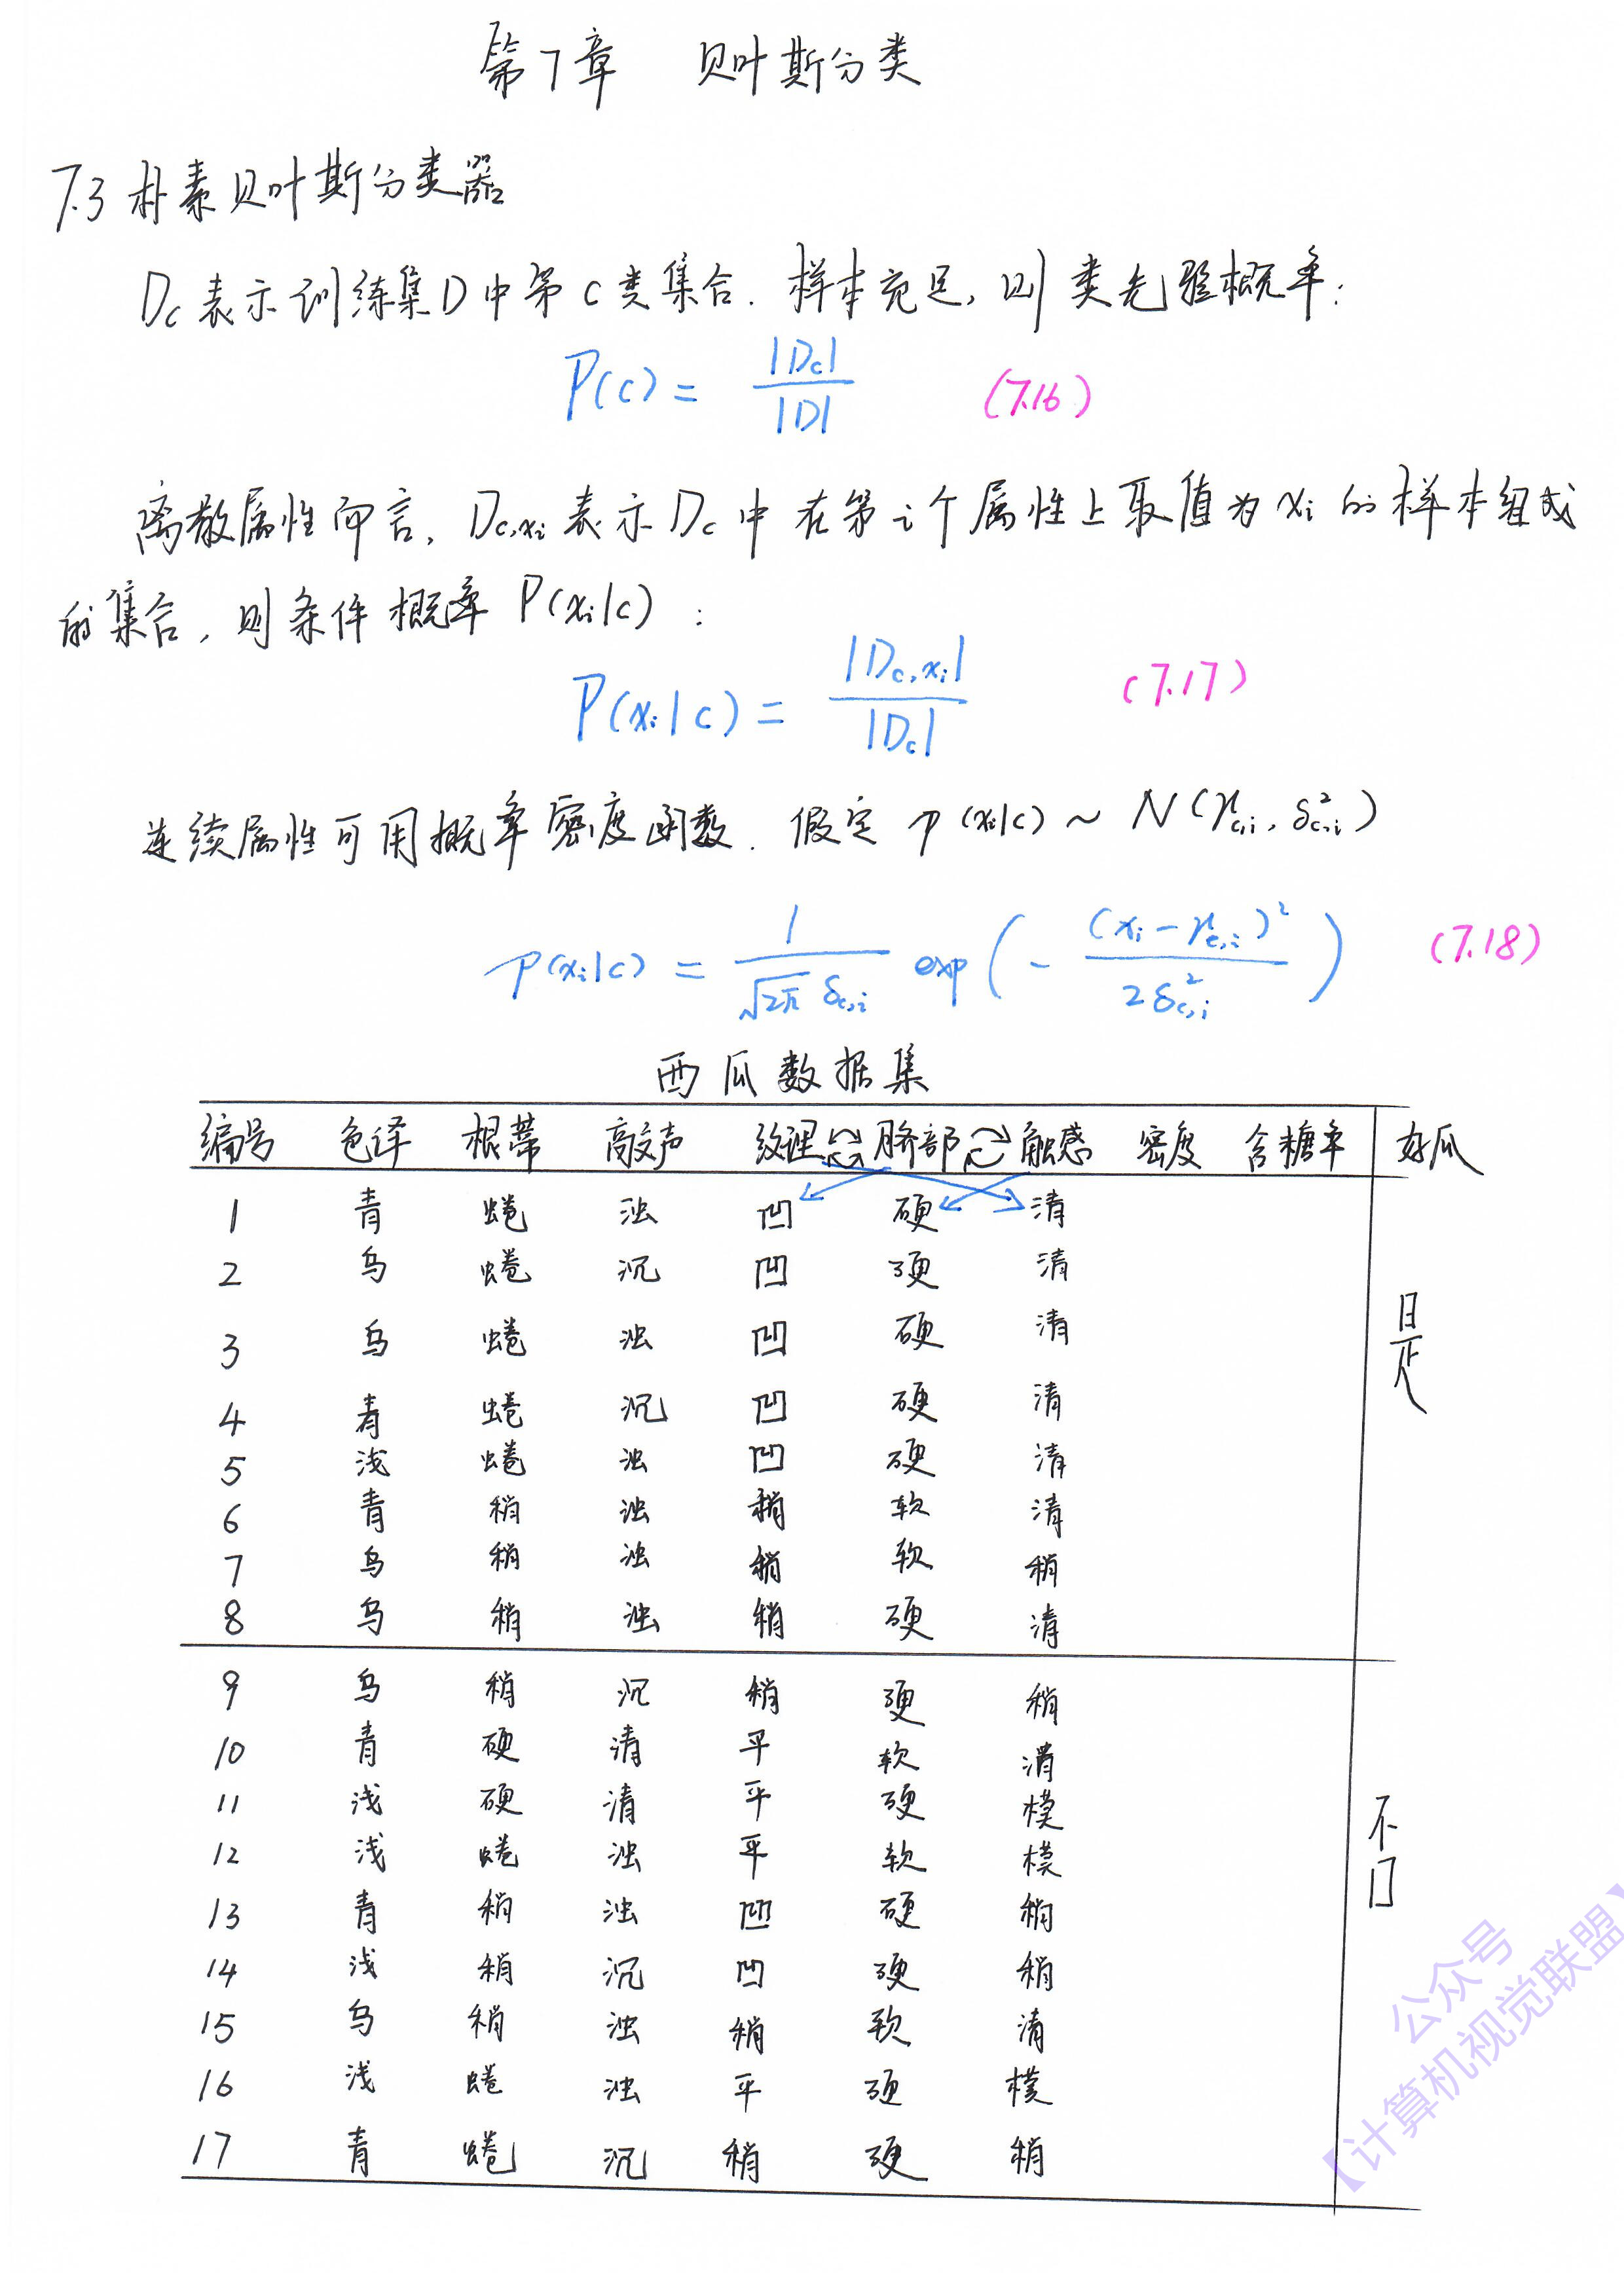 第7章 贝叶斯分类
7.3 朴素贝叶斯分类器
Dc表示训练集D中第c类集合. 样本充足, 则类先验概率:
P(c) = |Dc| / |D| (7.16)
离散属性而言, Dc,xi 表示 Dc 中在第i个属性上取值为 xi 的样本组成
的集合, 则条件概率 P(xi|c) :
P(xi|c) = |Dc,xi| / |Dc| (7.17)
连续属性可用概率密度函数. 假定 p(xi|c) ~ N(μc,i, δ²c,i)
p(xi|c) = 1 / (√2π δc,i) exp(- (xi-μc,i)² / 2δ²c,i) (7.18)
西瓜数据集
编号 色泽 根蒂 敲声 纹理 脐部 触感 密度 含糖率 好瓜
1 青 蜷 浊 凹 硬 清
2 乌 蜷 沉 凹 硬 清
3 乌 蜷 浊 凹 硬 清
是
4 青 蜷 沉 凹 硬 清
5 浅 蜷 浊 凹 硬 清
6 青 稍 浊 稍 软 清
7 乌 稍 浊 稍 软 稍
8 乌 稍 浊 稍 硬 清
9 乌 稍 沉 稍 硬 稍
10 青 硬 清 平 软 清
11 浅 硬 清 平 硬 模
12 浅 蜷 浊 平 软 模
不
13 青 稍 浊 凹 硬 稍
14 浅 稍 沉 凹 硬 稍
15 乌 稍 浊 稍 软 清
16 浅 蜷 浊 平 硬 模
17 青 蜷 沉 稍 硬 稍
公众号
【计算机视觉联盟】